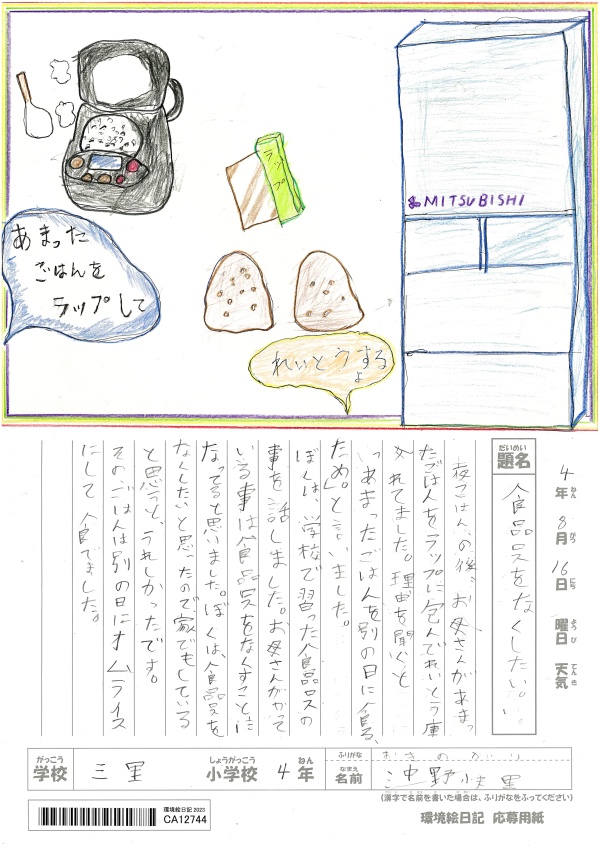 ラップ
MITSUBISHI
あまった
ごはんを
ラップして
れいとうする
よ
4年 8月 16日 曜日 天気
ねん がつ にち ようび てんき
だいめい
題名
食品ロスをなくしたい。
夜ごはんの後、お母さんがあまっ
たごはんをラップに包んでれいとう庫
入れてました。理由を聞くと
「あまったごはんを別の日に食る、
ため。」と言いました。
ぼくは、学校で習った食品ロスの
事を話しました。お母さんがかって
いる事は食品ロスをなくすことに
なってると思いました。ぼくは、食品ロスを
なくしたいと思ったので家でもしている
と思うと、うれしかったです。
そのごはんは別の日にオムライス
にして食でました。
がっこう しょうがっこう ねん
学校 三里 小学校 4年
ふりがな おきの
なまえ
名前 沖野
(漢字で名前を書いた場合は、ふりがなをふってください)
環境絵日記 2023
CA12744
環境絵日記 応募用紙